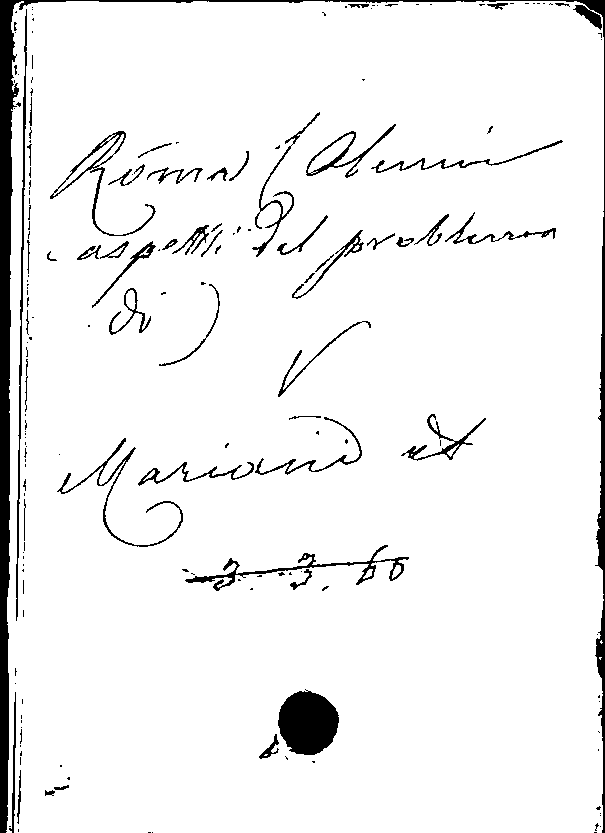 Roma (Alcuni
aspetti del problema
di)
V
Mariani
3. 3. 60